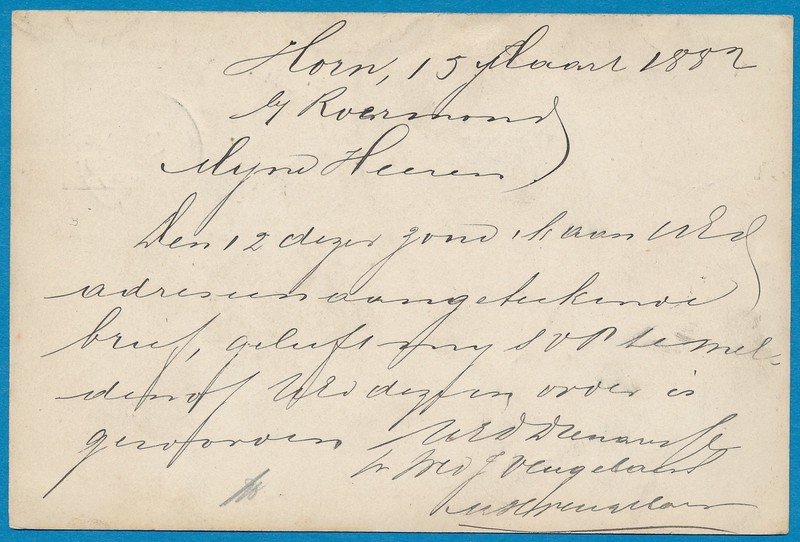 Horn, 15 Maart 1882
by Roermond
Myne Heeren
Den 12 dezer zond ik aan UEd
adres een aangeteekende
brief, gelieft my S V P te mel-
den of UEd deze in order is
geworden UEd Dienaresse
J Vengelaers